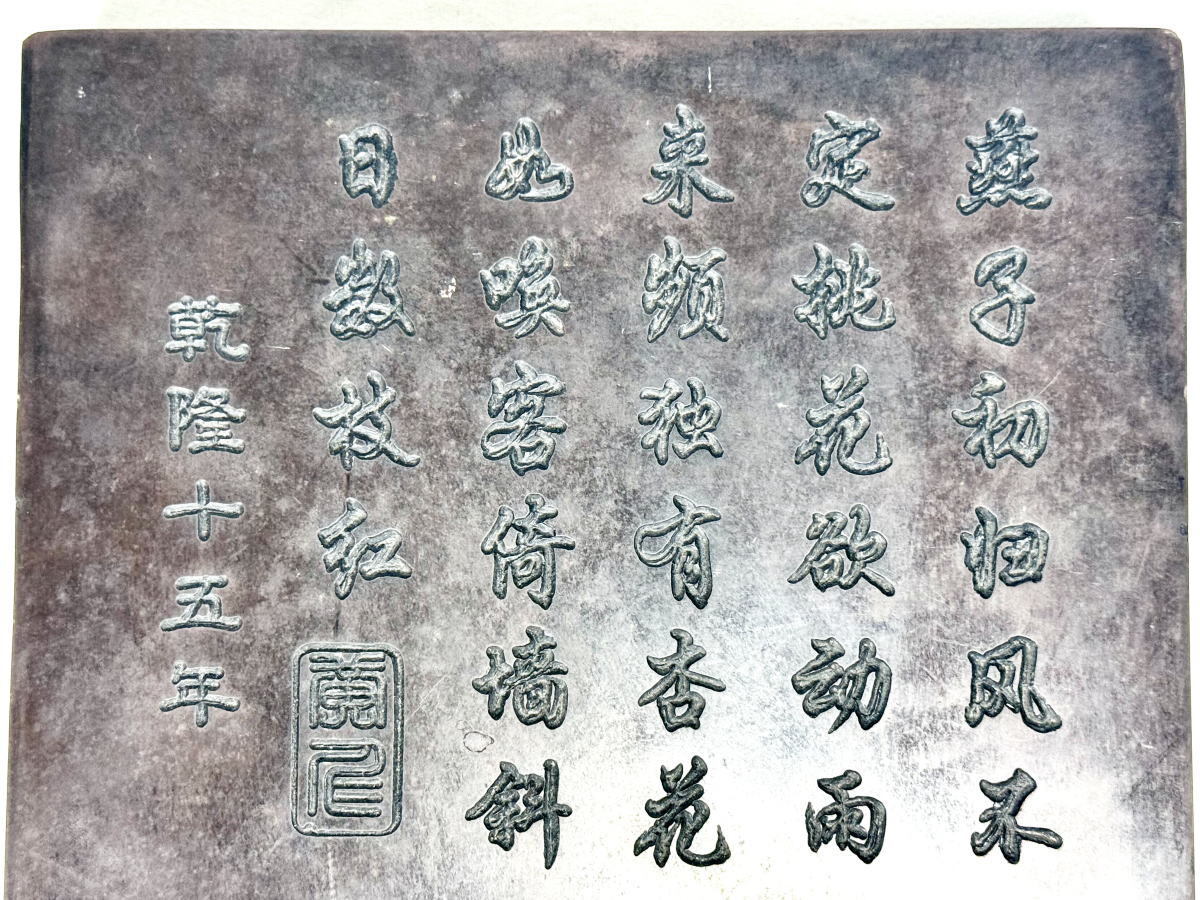 燕子初归风不
定桃花欲动雨
来频独有杏花
如唤客倚墙斜
日数枝红
乾隆十五年